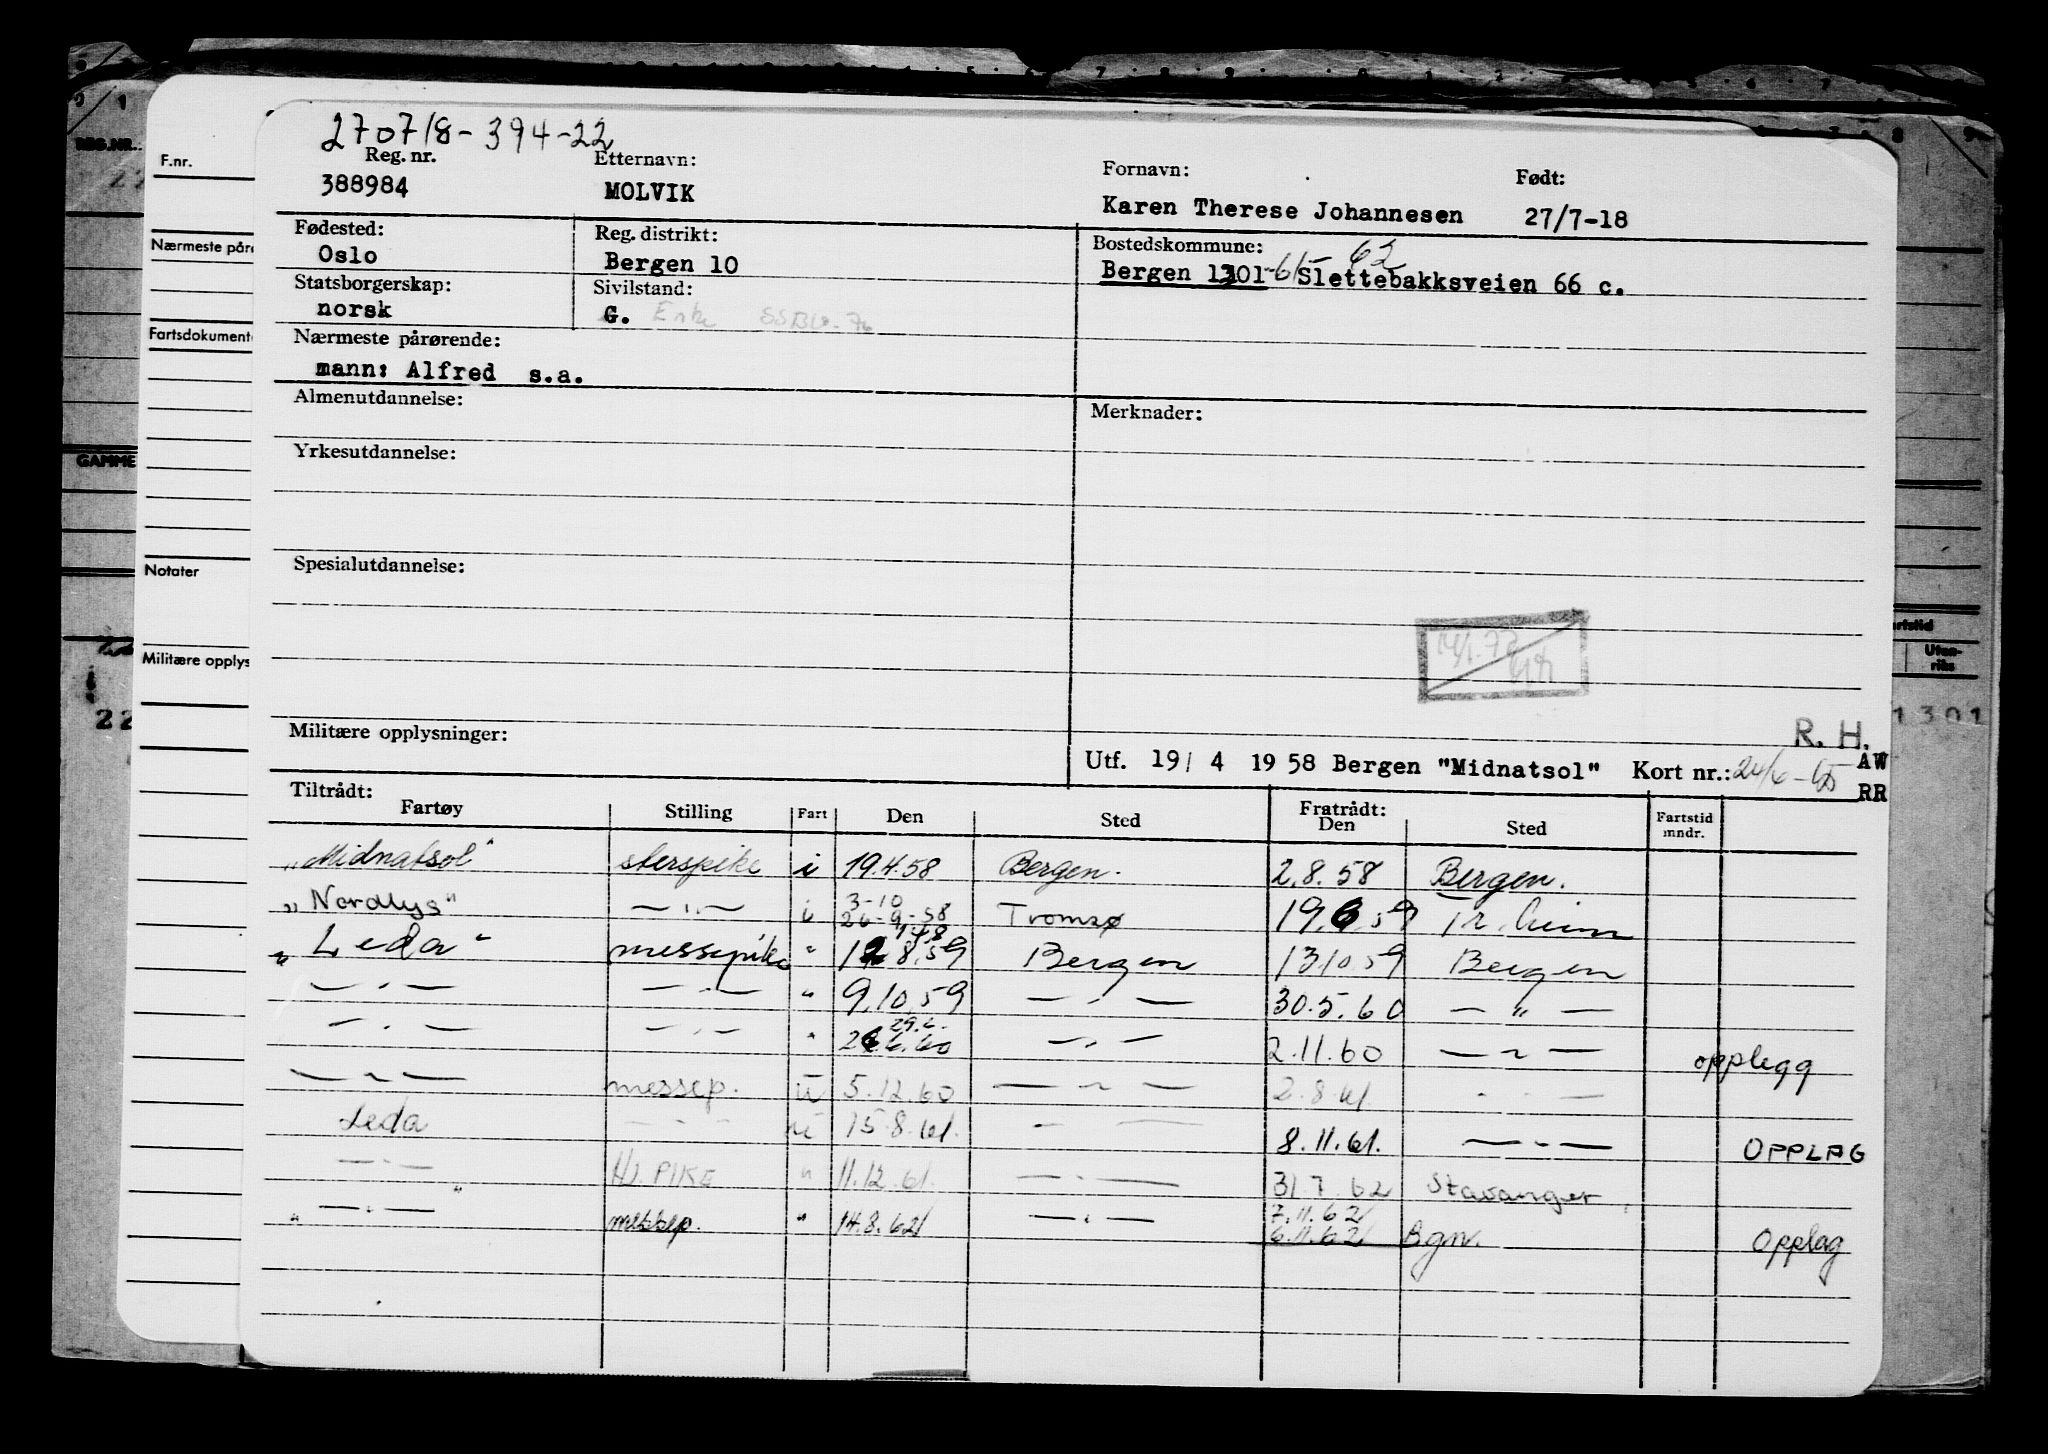 270718-394-22
Reg. nr. Etternavn: Fornavn: Født:
388984 MOLVIK Karen Therese Johannesen 27/7-18
Fødested: Reg. distrikt: Bostedskommune:
Oslo Bergen 10 Bergen 1301 -65 62 Slettebakksveien 66 c.
Statsborgerskap: Sivilstand:
norsk G. Enke
Nærmeste pårørende:
mann: Alfred s.a.
Almenutdannelse: Merknader:
Yrkesutdannelse:
Spesialutdannelse:
R. H.
Militære opplysninger: Utf. 19/ 4 1958 Bergen "Midnatsol" Kort nr.: 24/6-65 AW
RR
Tiltrådt: Fratrådt:
Fartøy Stilling Fart Den Sted Den Sted Fartstid mndr.
"Midnatsol" sterspike i 19.4.58 Bergen. 2.8.58 Bergen.
3-10
"Nordlys" — " — i 26-9-58 Tromsø 19.6.59 Tr.heim
"Leda" messepike " 12 8.59 Bergen 13.10.59 Bergen
— " — — " — " 9.10.59 — " — 30.5.60 — " —
— " — — " — " 6.60 — " — 2.11.60 — " — opplegg
— " — messep. u 5.12.60 — " — 2.8.61. — " —
Leda — " — u 15.8.61. — — 8.11.61. — " — OPPLAG
— " — PIKE " 11.12.61. — " — 31.7.62 Stavanger
7.11.62
" — " — messep. " 14.8.62 — " — 6.11.62 Bgn. Opplag
F.nr.
Nærmeste pårø
Fartsdokument
Notater
Militære opplys
REG.NR.
GAMME
22
rtstid
Utenriks
1301